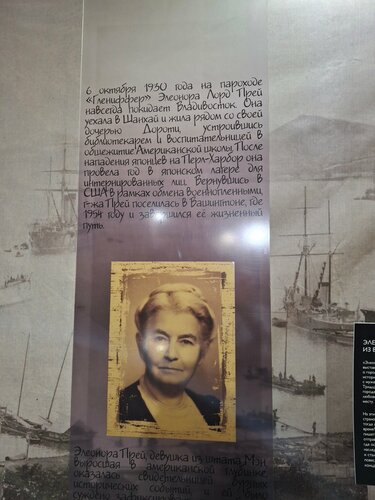 6 октября 1930 года на пароходе
«Гленифер» Элеонора Лорд Прей
навсегда покидает Владивосток. Она
уехала в Шанхай и жила рядом со своей
дочерью Дороти, устроившись
библиотекарем и воспитательницей в
общежитие Американской школы. После
нападения японцев на Перл-Харбор она
провела год в японском лагере для
интернированных лиц. Вернувшись в
США в рамках обмена военнопленными,
г-жа Прей поселилась в Вашингтоне, где
1954 году и завершился её жизненный
путь.
Элеонора Прей, девушка из штата Мэн,
выросшая в американской глубинке,
оказалась свидетельницей бурных
исторических событий,
ЭЛЕ
ИЗ В